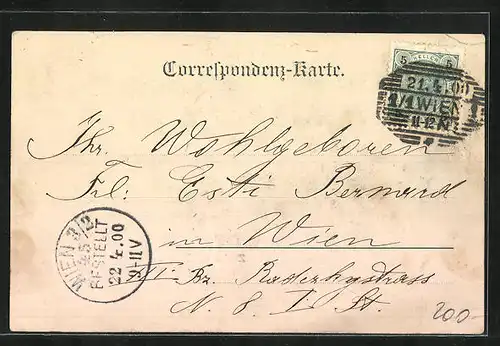 Correspondenz-Karte.
5 HELLER 5
21.4.00
1/1 WIEN 1
11-12.N
Ihr. Wohlgeboren
Frl. Esti Bernard
in Wien
III. Bz. Radetzkystrass
N. 8 I St.
WIEN 3/2
BESTELLT
22 4.00
200.-